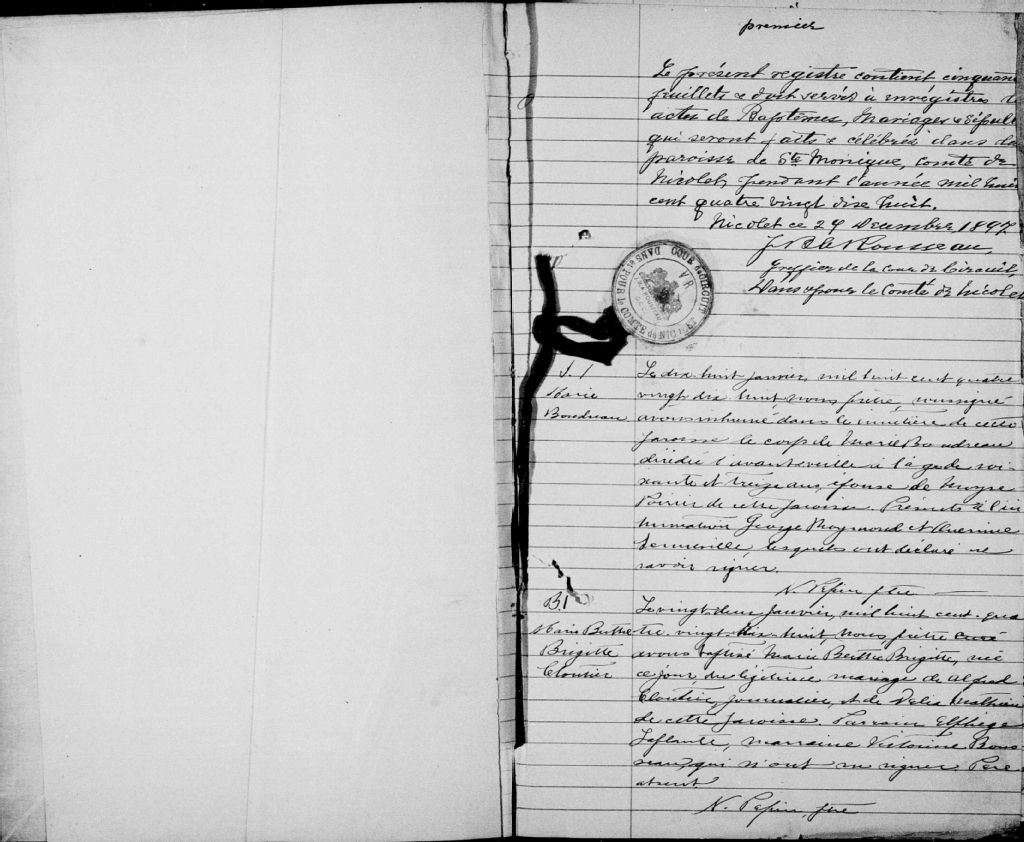 premier
Le présent registre contient cinquan
feuillets & doit servir à enrégistrer
actes de Baptêmes, Mariages & Sépul
qui seront faits & célébrés dans la
paroisse de Ste Monique, comté de
Nicolet, pendant l'année mil huit
cent quatre vingt dix huit.
Nicolet ce 29 Decembre 1897
Rousseau,
Greffier de la Cour de Circuit,
Dans & pour le Comté de Nicolet
COUR de CIRCUIT DANS et POUR le COMTE de NICOLET
V R
S. 1
Marie
Boudreau
Le dix huit janvier, mil huit cent quatre
vingt dix huit, nous prêtre, soussigné
avons inhumé dans le cimetière de cette
paroisse le corps de Marie Boudreau
décédée l'avant veille à l'âge de soi-
xante et treize ans, épouse de Moyse
Poirier de cette paroisse. Présents à l'in
humation George Raymond et
lesquels ont déclaré ne
savoir signer.
N. Pepin ptre
B. 1
Marie Berthe
Brigitte
Cloutier
Le vingt deux Janvier, mil huit cent qua
tre vingt dix huit, nous, prêtre curé
avons baptisé Marie Berthe Brigitte, née
ce jour du légitime mariage de Alfred
Cloutier, journalier, et de Delia Mathieu
de cette paroisse. Parrain Elphège
Laflamme, marraine Victorine Rous
seau, qui n'ont su signer. Père
absent
N. Pepin, ptre